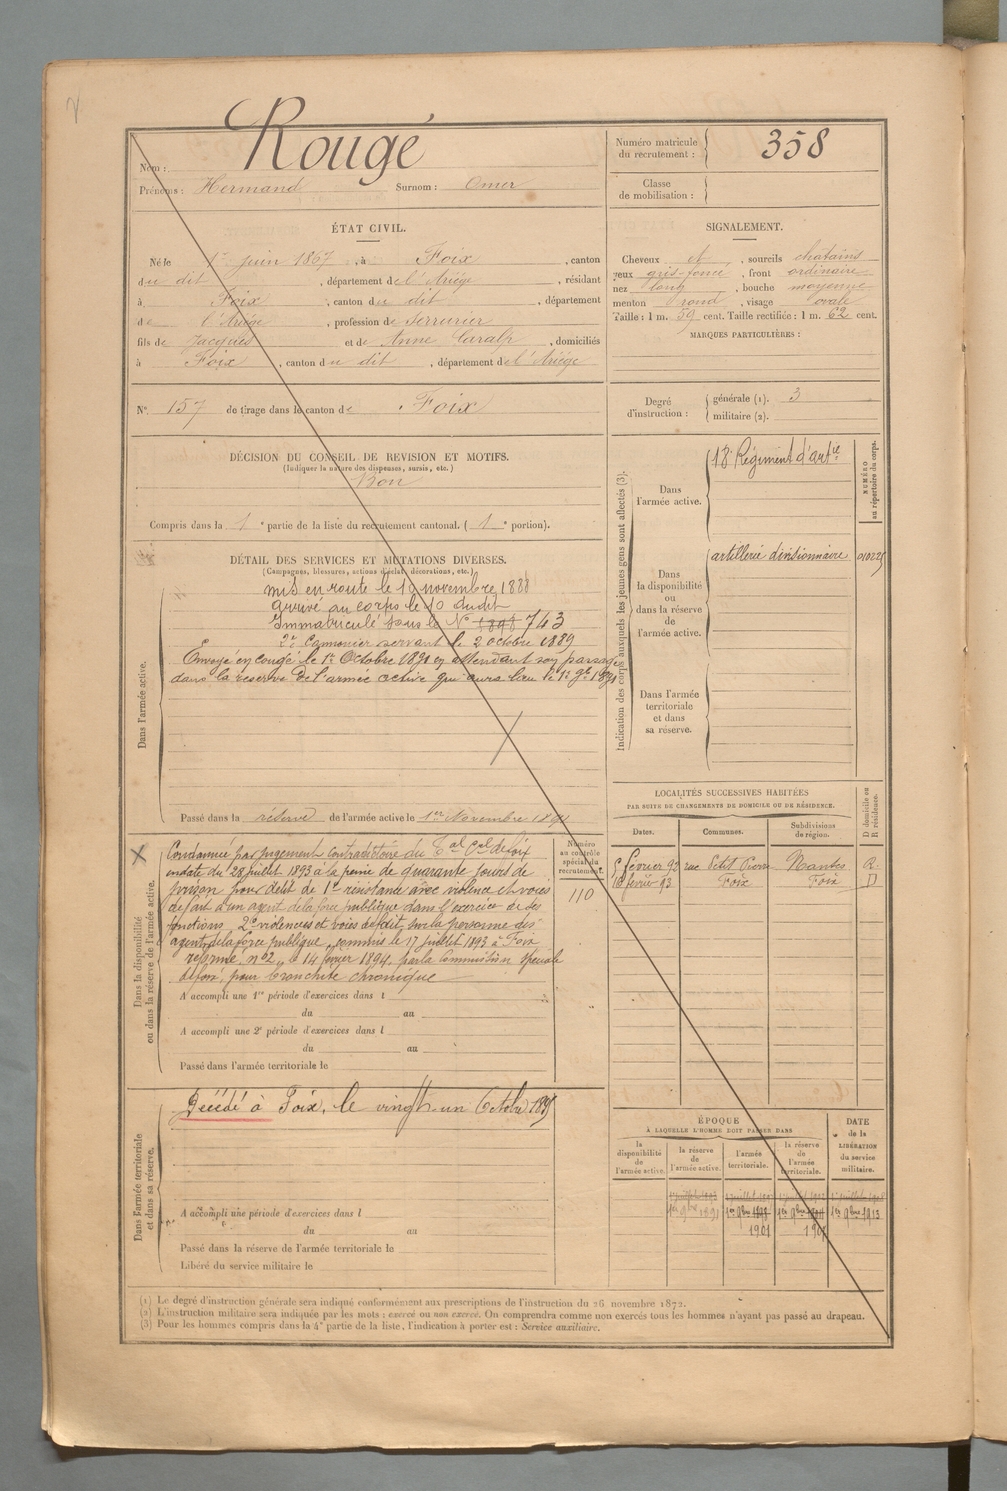 Nom : Rougé
Prénoms : Hermand Surnom : Omer
Numéro matricule du recrutement : 358
Classe de mobilisation :
ÉTAT CIVIL.
Né le 1er juin 1867, à Foix, canton
du dit, département de l'Ariége, résidant
à Foix, canton du dit, département
de l'Ariége, profession de Serrurier
fils de Jacques et de Anne Caralp, domiciliés
à Foix, canton du dit, département de l'Ariége
N° 157 de tirage dans le canton de Foix
SIGNALEMENT.
Cheveux et, sourcils chatains
yeux gris-foncé, front ordinaire
nez long, bouche moyenne
menton rond, visage ovale
Taille : 1 m. 59 cent. Taille rectifiée : 1 m. 62 cent.
MARQUES PARTICULIÈRES :
Degré d'instruction : générale (1). 3
militaire (2).
DÉCISION DU CONSEIL DE REVISION ET MOTIFS.
(Indiquer la nature des dispenses, sursis, etc.)
Bon
Compris dans la 1e partie de la liste du recrutement cantonal. (1e portion).
DÉTAIL DES SERVICES ET MUTATIONS DIVERSES.
(Campagnes, blessures, actions d'éclat, décorations, etc.)
Dans l'armée active.
mis en route le 10 novembre 1888
arrivé au corps le 10 dudit
Immatriculé sous le N° 1898 743
2e Canonier servant le 2 octobre 1889
Envoyé en congé le 1er Octobre 1891 en attendant son passage
dans la réserve de l'armée active qui aura lieu le 1er 9bre 1891
Passé dans la réserve de l'armée active le 1er Novembre 1891
Indication des corps auxquels les jeunes gens sont affectés (3).
NUMÉRO au répertoire du corps.
Dans l'armée active.
18e Régiment d'artie
Dans la disponibilité ou dans la réserve de l'armée active.
artillerie divisionnaire
Dans l'armée territoriale et dans sa réserve.
Dans la disponibilité ou dans la réserve de l'armée active.
Numéro au contrôle spécial du recrutement.
110
Condamné par jugement contradictoire du Tal Cel de Foix
en date du 28 juillet 1893 à la peine de quarante jours de
prison pour délit de 1° résistance avec violence et voies
de fait à un agent de la force publique dans l'exercice de ses
fonctions 2° violences et voies de fait sur la personne des
agents de la force publique, commis le 17 juillet 1893 à Foix
réformé n° 2 le 14 février 1894 par la Commission spéciale
de Foix pour bronchite chronique
A accompli une 1re période d'exercices dans l
du au
A accompli une 2e période d'exercices dans l
du au
Passé dans l'armée territoriale le
LOCALITÉS SUCCESSIVES HABITÉES
PAR SUITE DE CHANGEMENTS DE DOMICILE OU DE RÉSIDENCE.
D domicile ou R résidence.
Dates. Communes. Subdivisions de région.
5 février 92 rue Petit Pierre Nantes R.
16 février 93 Foix Foix D
Dans l'armée territoriale et dans sa réserve.
Décédé à Foix, le vingt un Octobre
A accompli une période d'exercices dans l
du au
Passé dans la réserve de l'armée territoriale le
Libéré du service militaire le
ÉPOQUE
À LAQUELLE L'HOMME DOIT PASSER DANS
DATE de la LIBÉRATION du service militaire.
la disponibilité de l'armée active.
la réserve de l'armée active.
l'armée territoriale.
la réserve de l'armée territoriale.
1er 9bre 1891 1er 9bre 1er 9bre 1er 9bre 1913
1901
(1) Le degré d'instruction générale sera indiqué conformément aux prescriptions de l'instruction du 26 novembre 1872.
(2) L'instruction militaire sera indiquée par les mots : exercé ou non exercé. On comprendra comme non exercés tous les hommes n'ayant pas passé au drapeau.
(3) Pour les hommes compris dans la 4e partie de la liste, l'indication à porter est : Service auxiliaire.